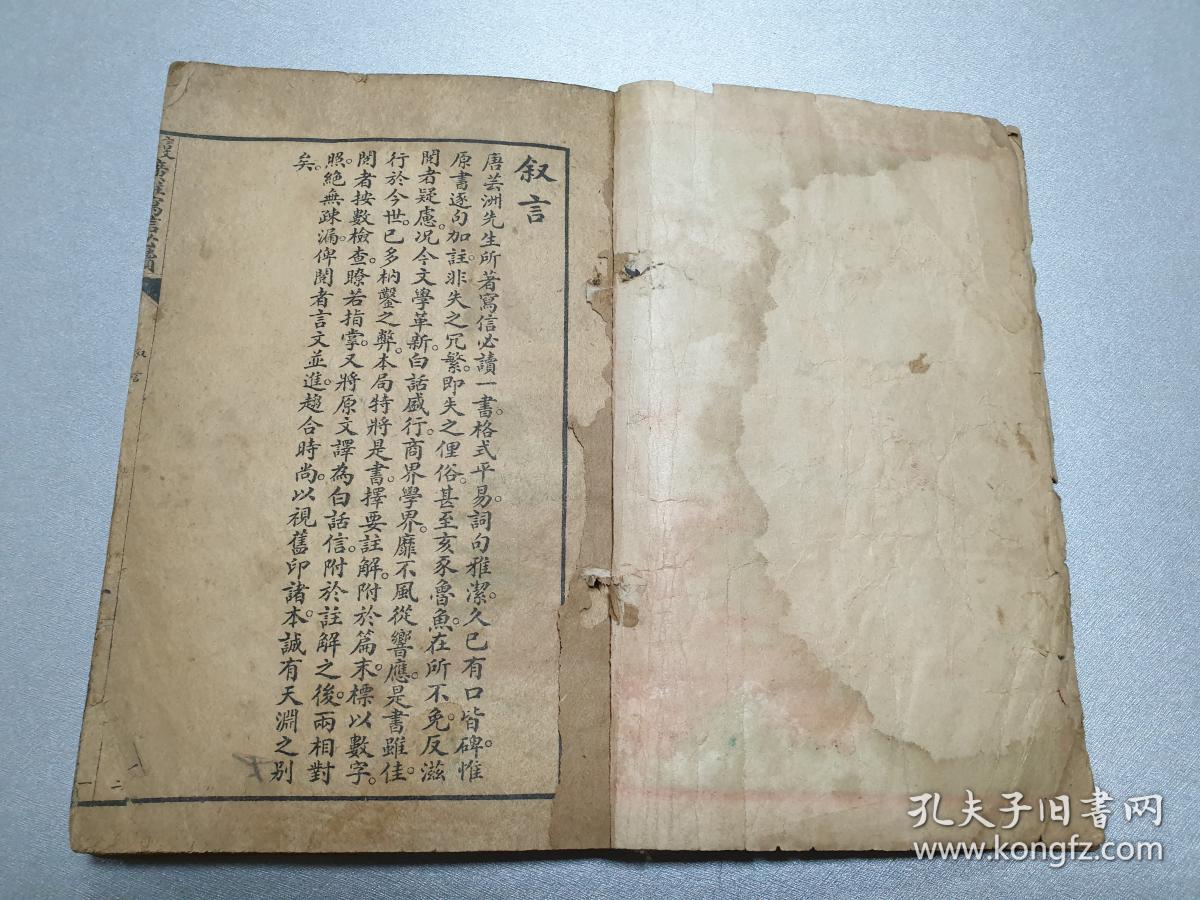 叙言
唐芸洲先生所著寫信必讀一書。格式平易。詞句雅潔。久已有口皆碑。惟
原書逐句加註。非失之冗繁。即失之俚俗。甚至亥豕魯魚。在所不免。反滋
閱者疑慮。况今文學革新。白話盛行。商界學界。靡不風從響應。是書雖佳。
行於今世。已多枘鑿之弊。本局特將是書。擇要註解。附於篇末。標以數字。
閱者按數檢查。瞭若指掌。又將原文譯為白話信。附於註解之後。兩相對
照。絶無疎漏。俾閱者言文並進。趨合時尚。以視舊印諸本。誠有天淵之别
矣。
叙言
一
二
孔夫子旧書网
www.kongfz.com